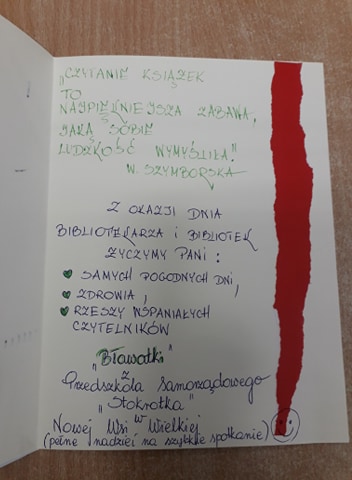 „CZYTANIE KSIĄŻEK
TO
NAJPIĘKNIEJSZA ZABAWA,
JAKĄ SOBIE
LUDZKOŚĆ WYMYŚLIŁA."
W. SZYMBORSKA
Z OKAZJI DNIA
BIBLIOTEKARZA i BIBLIOTEK
ŻYCZYMY PANI :
SAMYCH POGODNYCH DNI,
ZDROWIA,
RZESZY WSPANIAŁYCH
CZYTELNIKÓW
„Bławatki"
z
Przedszkola Samorządowego
„Stokrotka"
w
Nowej Wsi Wielkiej
(pełne nadziei na szybkie spotkanie)